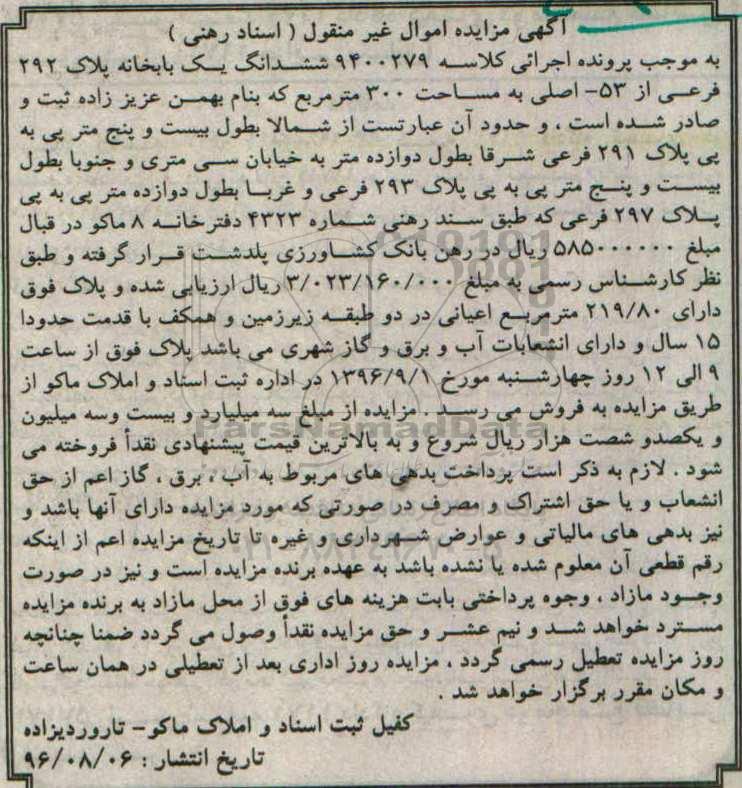 آگهی مزایده اموال غیر منقول ( اسناد رهنی )
به موجب پرونده اجرائی کلاسه ۹۴۰۰۲۷۹ ششدانگ یک بابخانه پلاک ۲۹۲
فرعی از ۵۳- اصلی به مساحت ۳۰۰ مترمربع که بنام بهمن عزیز زاده ثبت و
صادر شده است ، و حدود آن عبارتست از شمالا بطول بیست و پنج متر پی به
پی پلاک ۲۹۱ فرعی شرقا بطول دوازده متر به خیابان سی متری و جنوبا بطول
بیست و پنج متر پی به پی پلاک ۲۹۳ فرعی و غربا بطول دوازده متر پی به پی
پلاک ۲۹۷ فرعی که طبق سند رهنی شماره ۴۳۲۳ دفترخانه ۸ ماکو در قبال
مبلغ ۵۸۵۰۰۰۰۰۰ ریال در رهن بانک کشاورزی پلدشت قرار گرفته و طبق
نظر کارشناس رسمی به مبلغ ۳/۰۲۳/۱۶۰/۰۰۰ ریال ارزیابی شده و پلاک فوق
دارای ۲۱۹/۸۰ مترمربع اعیانی در دو طبقه زیرزمین و همکف با قدمت حدودا
۱۵ سال و دارای انشعابات آب و برق و گاز شهری می باشد پلاک فوق از ساعت
۹ الی ۱۲ روز چهارشنبه مورخ ۱۳۹۶/۹/۱ در اداره ثبت اسناد و املاک ماکو از
طریق مزایده به فروش می رسد . مزایده از مبلغ سه میلیارد و بیست وسه میلیون
و یکصدو شصت هزار ریال شروع و به بالاترین قیمت پیشنهادی نقدأ فروخته می
شود . لازم به ذکر است پرداخت بدهی های مربوط به آب ، برق ، گاز اعم از حق
انشعاب و یا حق اشتراک و مصرف در صورتی که مورد مزایده دارای آنها باشد و
نیز بدهی های مالیاتی و عوارض شهرداری و غیره تا تاریخ مزایده اعم از اینکه
رقم قطعی آن معلوم شده یا نشده باشد به عهده برنده مزایده است و نیز در صورت
وجود مازاد ، وجوه پرداختی بابت هزینه های فوق از محل مازاد به برنده مزایده
مسترد خواهد شد و نیم عشر و حق مزایده نقدأ وصول می گردد ضمنا چنانچه
روز مزایده تعطیل رسمی گردد ، مزایده روز اداری بعد از تعطیلی در همان ساعت
و مکان مقرر برگزار خواهد شد .
کفیل ثبت اسناد و املاک ماکو- تاروردیزاده
تاریخ انتشار : ۹۶/۰۸/۰۶
ParsNamadData